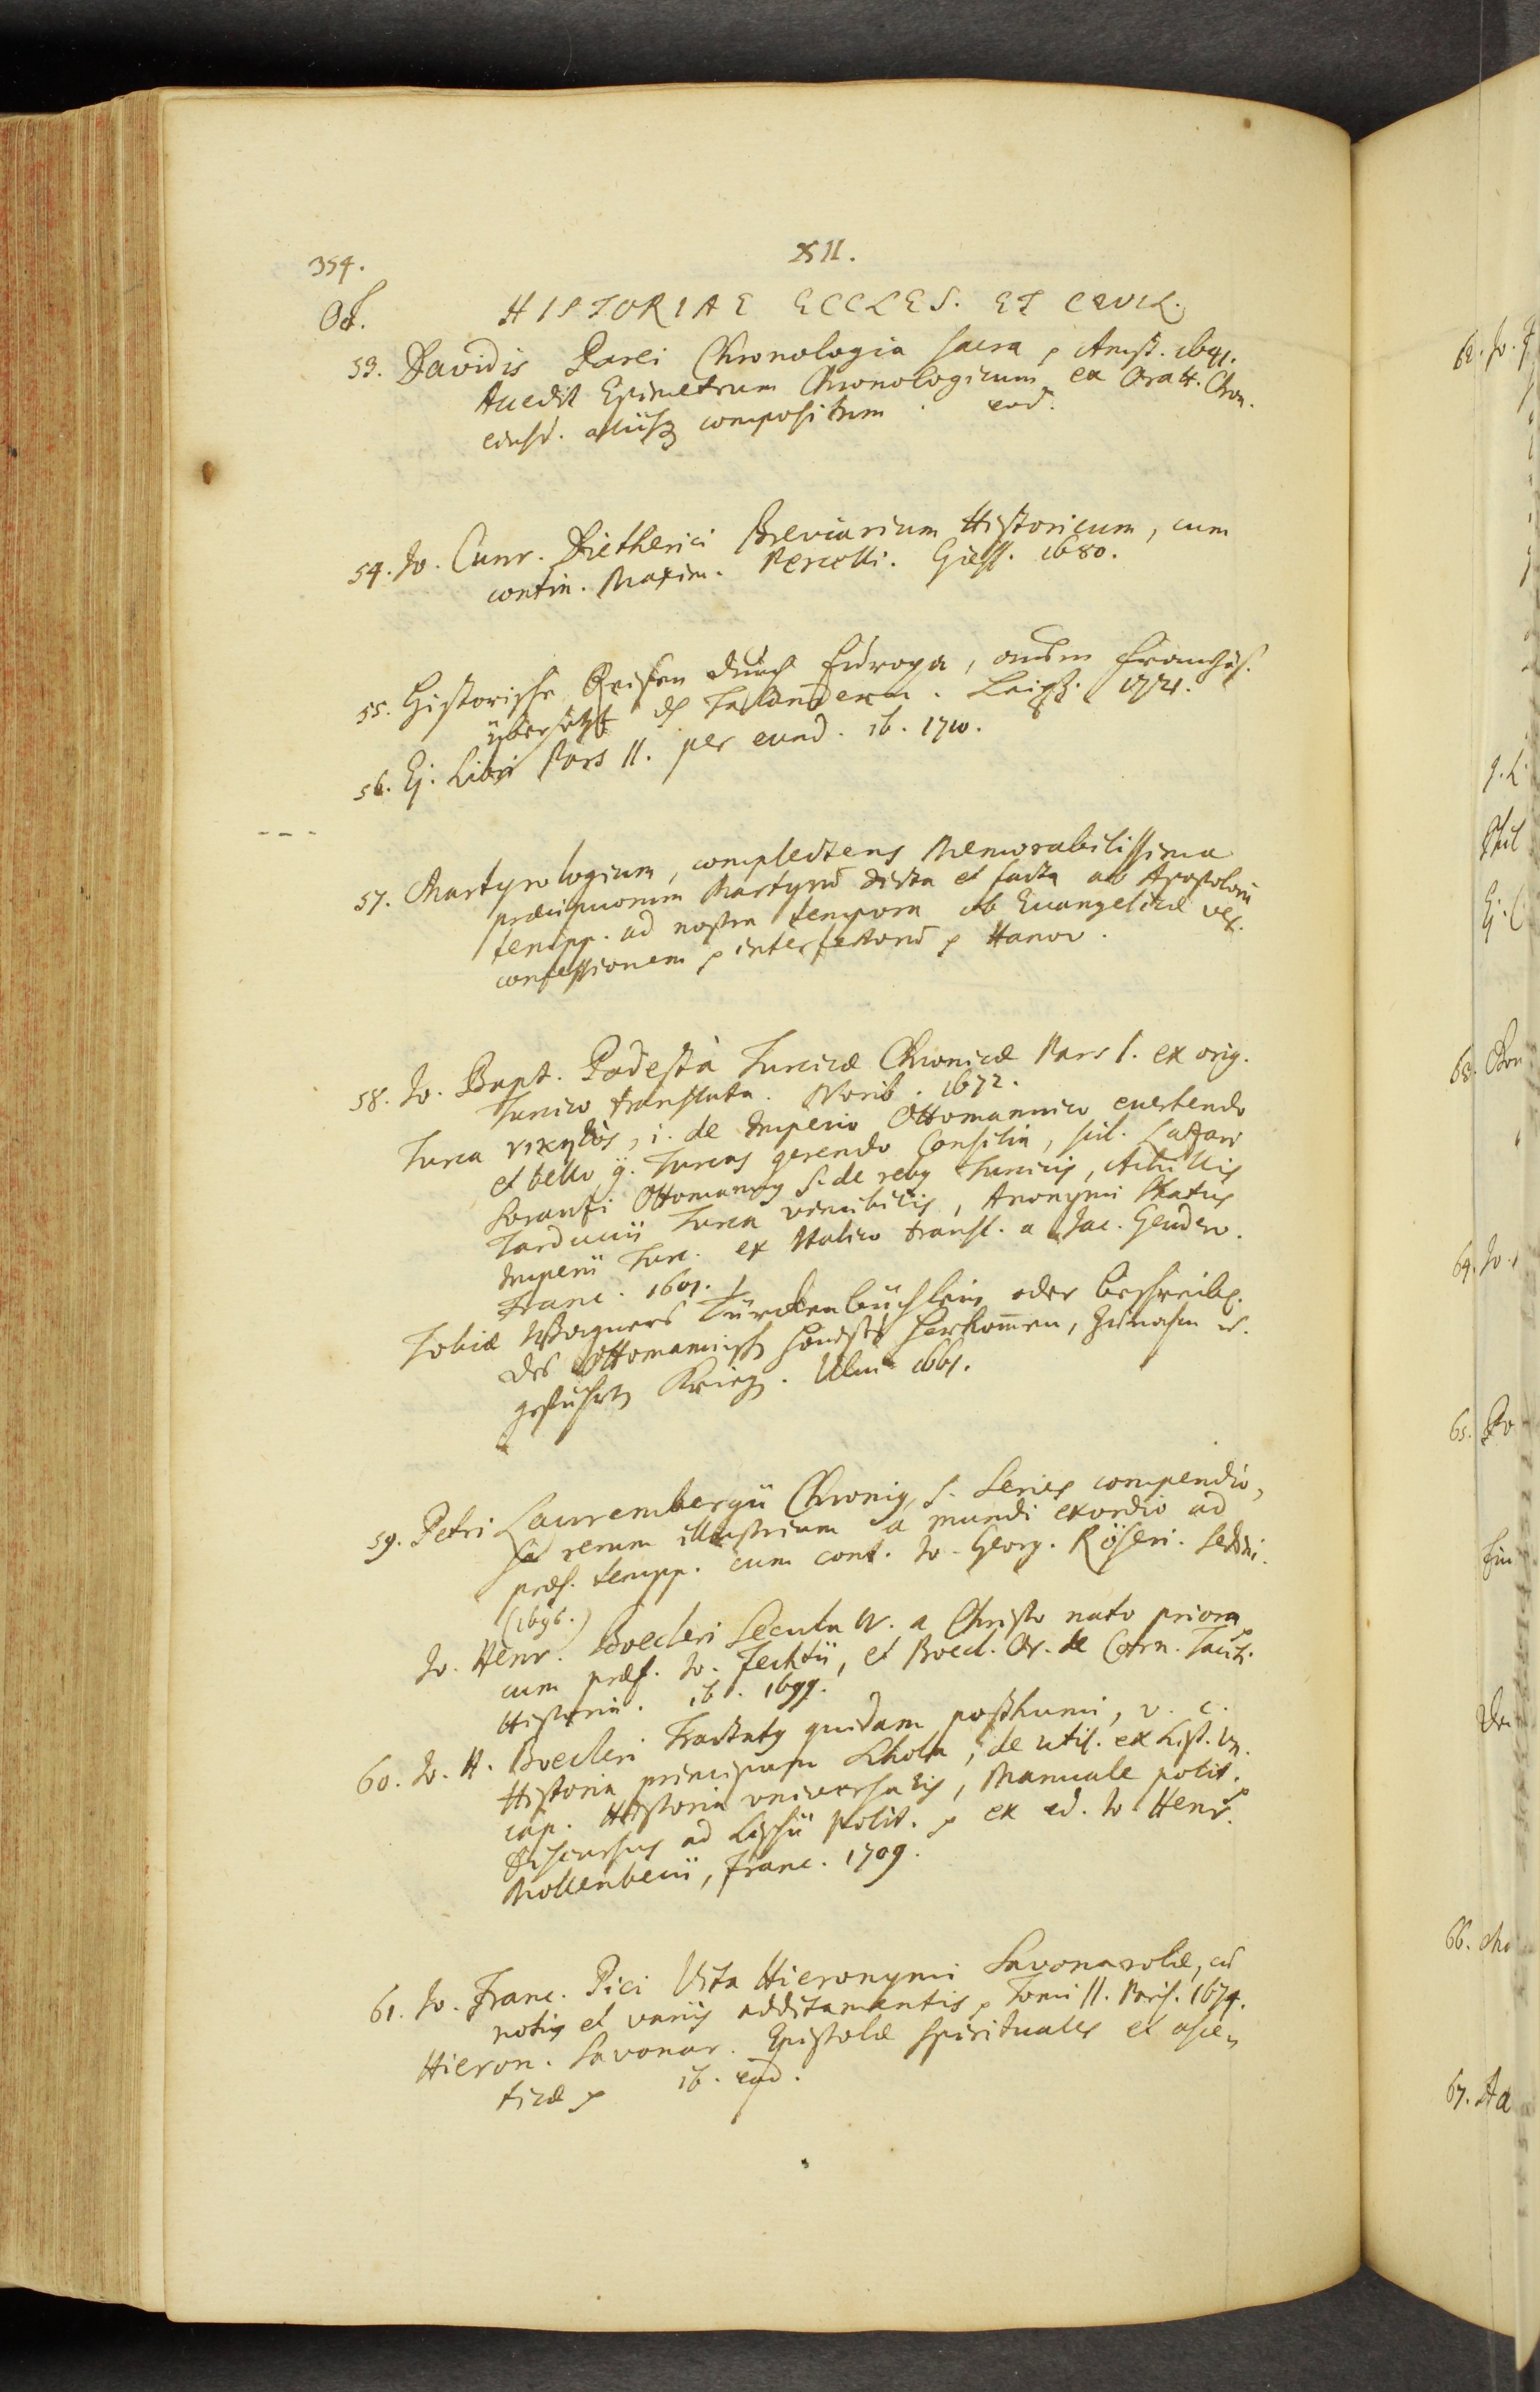 354.
XII.
Oct.
HISTORIAE ECCLES. ET CIVIL.
53. Davidis Parei Chronologia sacra p Amst. 1641.
Accedit Epimetrum Chronologicum ex Oratt. Chron.
ejusd. aliisq compositum. eod.
54. Jo. Cunr. Dietherici Breviarium Historicum, cum
contin. Maxim. Percelli. Giess. 1680.
55. Historische Reisen durch Europa, aus dem Französ.
übersetzt Talandern. Leipz.
56. Ej. Libri Pars II. per eund. ib. 1710.
- - -
57. Martyrologium, complectens Memorabilissima
præcipuorum Martyrū dicta et facta ab Apostolorū
tempp. ad nostra tempora ob Evangelicæ ver.
confessionem p interfectorū p Hanov.
58. Jo. Bapt. Podestà Turcicæ Chronicæ Pars I. ex orig.
Turcico translata. Norib. 1672.
Turca νικητὸς, i. de Imperio Ottomannico evertendo
et bello c. Turcas gerendo Consilia, scil. Lazari
Soranzi Ottomannus s. de rebus Turcicis, Achillis
Tarducii Turca vincibilis, Anonymi Status
Imperii Turc. ex Italico transl. a Jac. Geudero.
Franc. 1601.
Tobiæ Wagners Türckenbüchlein oder Beschreib.
des Ottomannisch Hauses Herkom̄en, Zunahm u.
geführten Krieg. Ulm 1661.
59. Petri Laurembergii Chronius, s. Series compendio-
sa rerum illustrium a mundi exordio ad
præs. tempp. cum cont. Jo. Georg. Röseri. Sedini.
(1696.)
Jo. Henr. Boecleri Secula IV. a Christo nato priora
cum præf. Jo. Fechtii, et Boecl. Or. de Corn. Taciti
Historia. ib. 1699.
60. Jo. H. Boecleri Tractatus quidam posthumi, v. c.
Historia principum Schola, de util. ex hist. un.
cap. Historia universalis, Manuale polit.
Discursus ad Lipsii Polit. p ex ed. Jo. Henr.
Mollenbecii, Franc. 1709.
61. Jo. Franc. Pici Vita Hieronymi Savonarolæ, cū
notis et variis additamentis p Tomi II. Paris. 1674.
Hieron. Savonar. Epistolæ spirituales et asce-
ticæ p ib. eod.
62. Jo.
64. Jo.
65.
66.
67. Ad